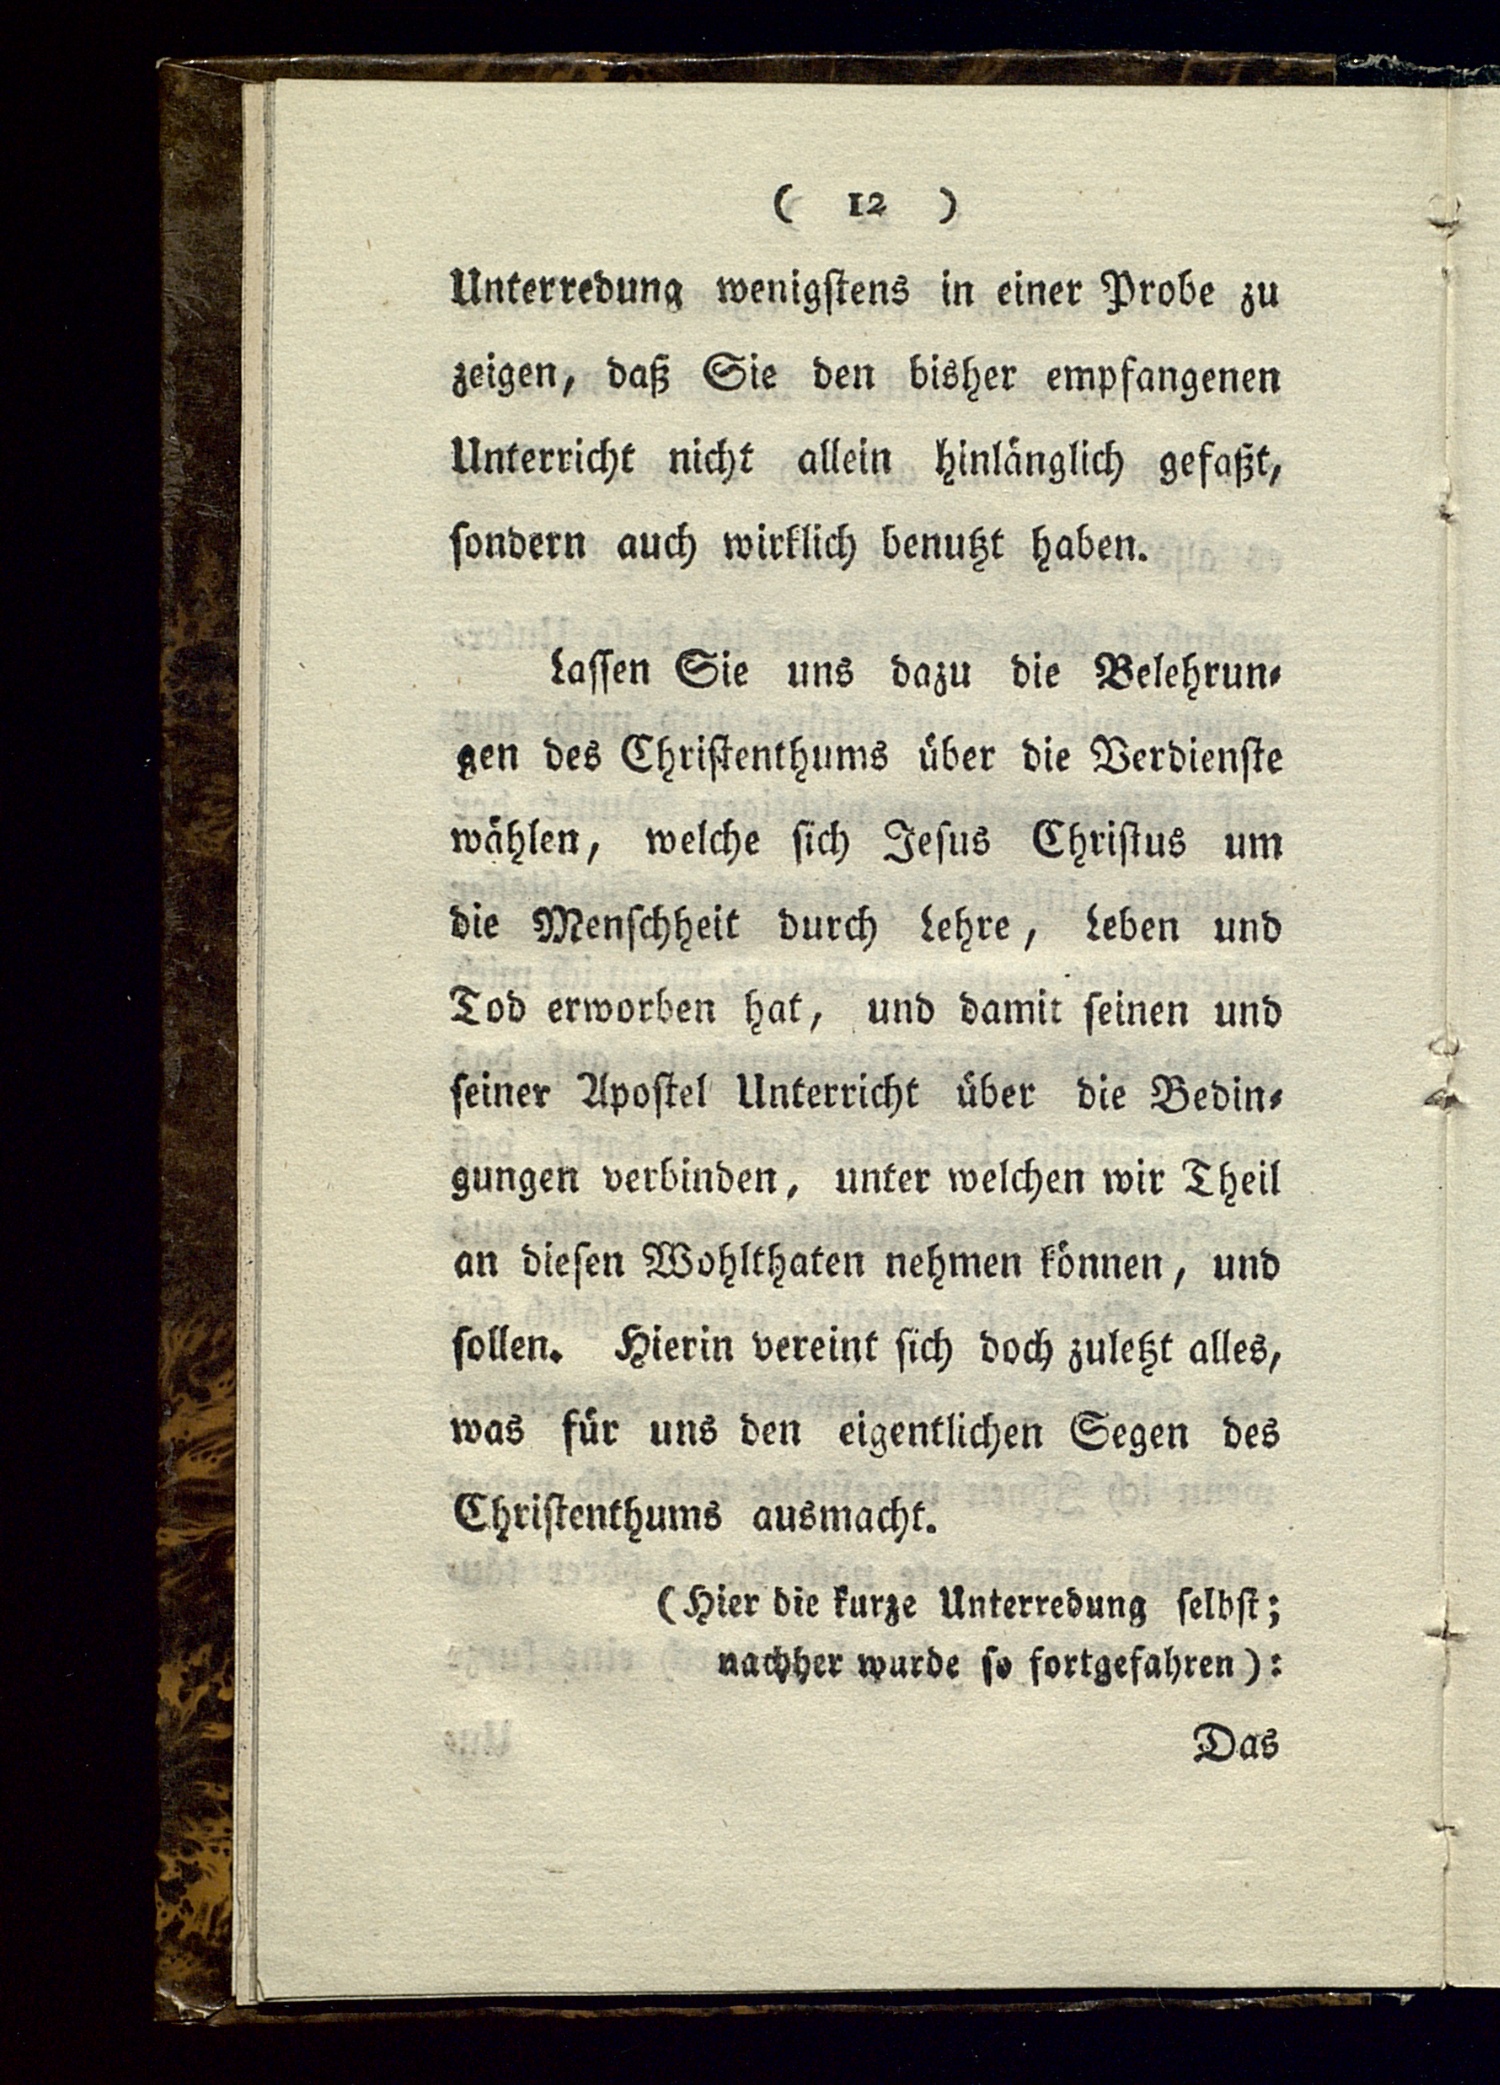 ( 12 )
Unterredung wenigstens in einer Probe zu
zeigen, daß Sie den bisher empfangenen
Unterricht nicht allein hinlänglich gefaßt,
sondern auch wirklich benutzt haben.
Lassen Sie uns dazu die Belehrun-
gen des Christenthums über die Verdienste
wählen, welche sich Jesus Christus um
die Menschheit durch Lehre, Leben und
Tod erworben hat, und damit seinen und
seiner Apostel Unterricht über die Bedin-
gungen verbinden, unter welchen wir Theil
an diesen Wohlthaten nehmen können, und
sollen. Hierin vereint sich doch zuletzt alles,
was für uns den eigentlichen Segen des
Christenthums ausmacht.
(Hier die kurze Unterredung selbst;
nachher wurde so fortgefahren):
Das